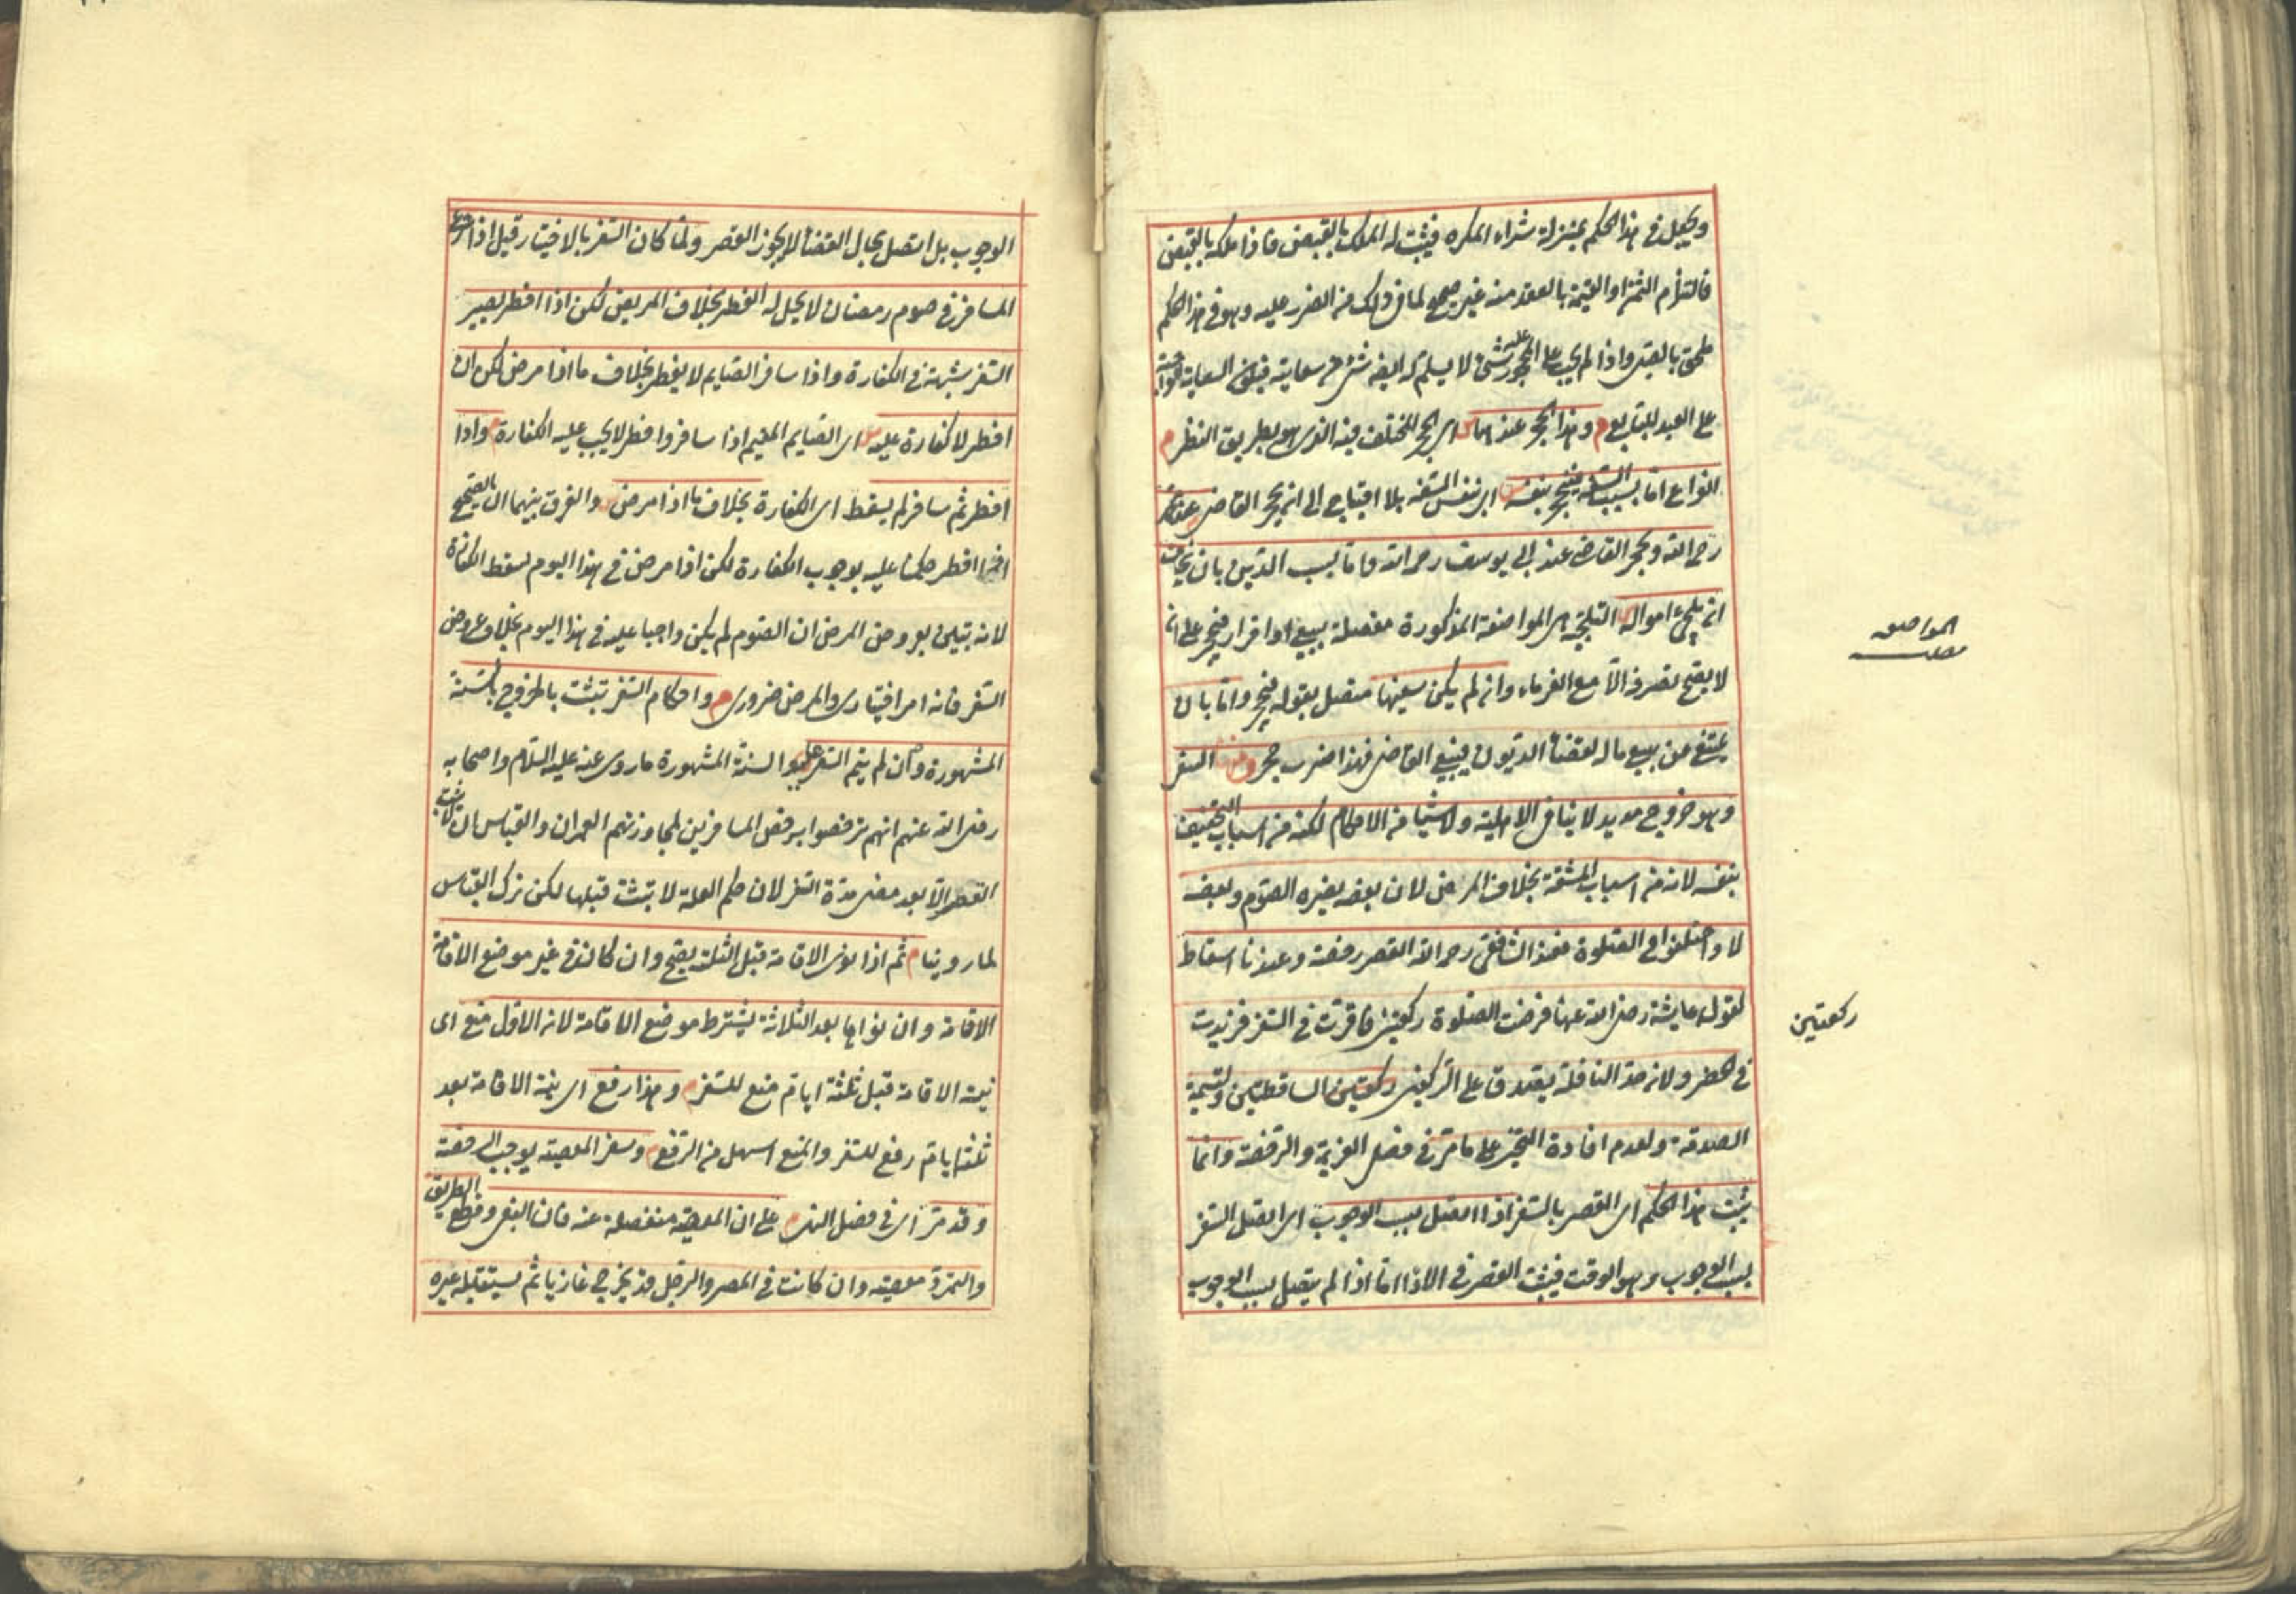 ويجعل في هذا الحكم بمنزلة شراء المكره فيثبت له الملك بالقبض فاذا ملكه بالقبض
فالتزام الثمن او القيمة بالعقد منه غير صحيح لما في ذلك من الضرر عليه وهو في هذا الحكم
ملحق بالصبي واذا لم يجب على المحجور عليه شئ لا يسلم له ايضا شئ من سعايته فيكون السعاية الواجبة
على العبد للبايع م وهذا الحجر عندهما س اى الحجر المختلف فيه الذى هو بطريق النظر م
انواع اما بسبب السفه فينحجر بنفسه س اى بنفس السفه بلا احتياج الى ان يحجر القاضى عند محمد
رحمه الله وبحجر القاضى عند ابى يوسف رحمه الله واما بسبب الدين بان يخاف
ان يلجئ امواله التلجئة هى المواضعة المذكورة مفصلة ببيع او اقرار فيحجر على انه
لا يصح تصرفه الا مع الغرماء وان لم يكن سفيها متصل بقوله فيحجر واما بان
يمتنع عن بيع ماله لقضاء الديون فيبيع القاضى فهذا ضرب حجر ومنها السفر
وهو خروج مديد لا ينافى الاهلية ولا شيئا من الاحكام لكنه من اسباب التخفيف
بنفسه لانه من اسباب المشقة بخلاف المرض لان بعضه يضره الصوم وبعضه
لا واختلفوا فى الصلوة فعند الشافعى رحمه الله القصر رخصة وعندنا اسقاط
لقول عايشة رضى الله عنها فرضت الصلوة ركعتين فاقرت فى السفر فزيدت
فى الحضر ولانه حد النافلة يصدق على الركعتين ركعتين الساقطتين ولتسمية
الصدقة ولعدم افادة التخيير على ما مر فى فصل العزيمة والرخصة وانما
يثبت هذا الحكم اى القصر بالسفر اذا اتصل بسبب الوجوب اى اتصل السفر
بسبب الوجوب وهو الوقت فيثبت القصر فى الاداء اما اذا لم يتصل بسبب الوجوب
المواضعة
ركعتين
الوجوب بل اتصل بحال القضاء لا يجوز القصر ولما كان السفر بالاختيار قيل اذا شرع
المسافر فى صوم رمضان لا يحل له الفطر بخلاف المريض لكن اذا افطر يصير
السفر شبهة فى الكفارة واذا سافر الصايم لا يفطر بخلاف ما اذا مرض لكن ان
افطر لا كفارة عليه س اى الصايم المقيم اذا سافر وافطر لا يجب عليه الكفارة م واذا
افطر ثم سافر لم يسقط اى الكفارة بخلاف ما اذا مرض س والفرق بينهما ان الصحيح
اذا افطر حكمنا عليه بوجوب الكفارة لكن اذا مرض فى هذا اليوم تسقط الكفارة
لانه تبين بعروض المرض ان الصوم لم يكن واجبا عليه فى هذا اليوم بخلاف عروض
السفر فانه امر اختيارى والمرض ضرورى م واحكام السفر تثبت بالخروج بالسنة
المشهورة وان لم يتم السفر علة والسنة المشهورة ما روى عنه عليه السلام واصحابه
رضى الله عنهم انهم ترخصوا برخص المسافرين لمجاوزتهم العمران والقياس ان لا يثبت
القصر الا بعد مضى مدة السفر لان حكم العلة لا تثبت قبلها لكن ترك القياس
لما روينا م ثم اذا نوى الاقامة قبل الثلثة يصح وان كان فى غير موضع الاقامة
الاقامة وان نواها بعد الثلاثة يشترط موضع الاقامة لانه الاول منع اى
نية الاقامة قبل ثلثة ايام منع للسفر م وهذا رفع اى نية الاقامة بعد
ثلثة ايام رفع للسفر والمنع اسهل من الرفع م وسفر المعصية يوجب الرخصة
وقد مر اى فى فصل النهى م على ان المعصية منفصلة عنه فان البغى وقطع الطريق
والتمرد معصية وان كانت فى المصر والرجل قد يخرج غازيا ثم يستقبله غيره